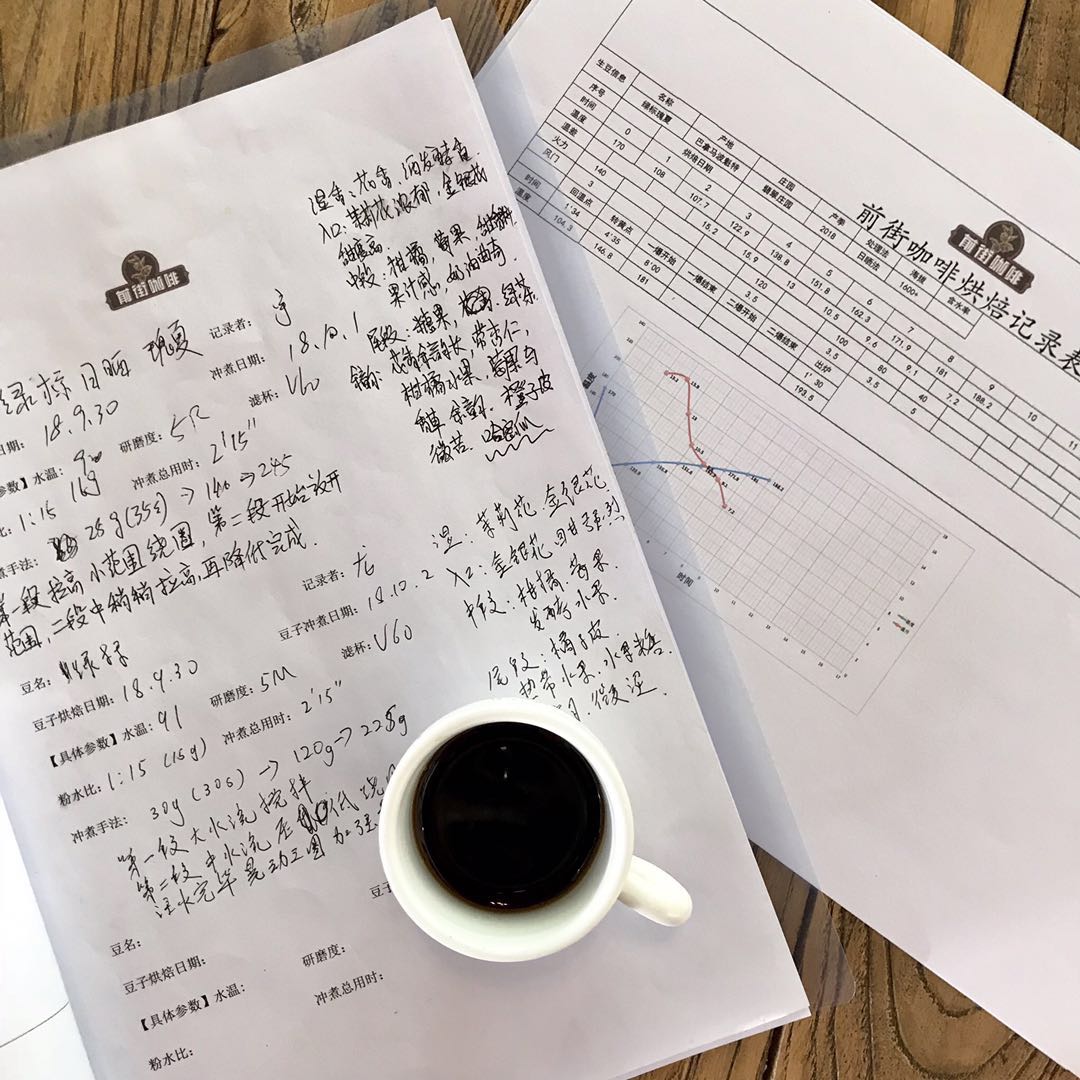 前街咖啡
绿标日晒 瑰夏
记录者：宇
日期：18.9.30
冲煮日期：18.10.1
研磨度：5R
滤杯：V60
参数】水温：90
冲煮总用时：2'15"
比：1:15 16g
煮手法：25g(35s) → 140 → 245
第一段拉高小范围绕圈，第二段开始放开
范围，二段中稍稍拉高，再降低完成.
湿香：花香，酒发酵香
入口：茉莉花浓郁，金银花
甜度高.
中段：柑橘，苹果，
果汁感，奶油曲奇
尾段：糖果，绿茶
带杏仁，
柑橘水果，苹果与
余韵，橙子皮
微苦. 哈密瓜
豆名：绿标
记录者：尤
豆子烘焙日期：18.9.30
豆子冲煮日期：18.10.2
研磨度：5M
滤杯：V60
【具体参数】水温：91
冲煮总用时：2'15"
粉水比：1:15 (15g)
冲煮手法：30g (30s) → 120g → 228g
第一段大水流搅拌
第二段中水流 低绕
注水完毕晃动三圈
湿：茉莉花.金银花
入口：金银花 回甘强烈
中段：柑橘.苹果.
发酵水果.
尾段：橘子皮
热带水果.水果糖.
微涩.
豆名：
豆子
豆子烘焙日期：
研磨度：
【具体参数】水温：
冲煮总用时：
粉水比：
前街咖啡
前街咖啡烘焙记录表
生豆信息 名称 产地 庄园 产季 处理法 海拔 含水率
绿标瑰夏 巴拿马波魁特 翡翠庄园 2018 日晒法 1600+
序号 烘焙日期
时间 0 1 2 3 4 5 6 7 8 9 10 11
温度 170 108 107.7 122.9 138.8 151.8 162.3 171.9 181 188.2
温差 15.2 15.9 13 10.5 9.6 9.1 7.2
火力 140 120 100 80 40
风门 3 3.5 3.5 5
回温点 转黄点 一爆开始 一爆结束 二爆开始 二爆结束 出炉
时间 1'34 4'35 8'00 1'30
温度 104.3 144.8 181 193.8
温度
时间